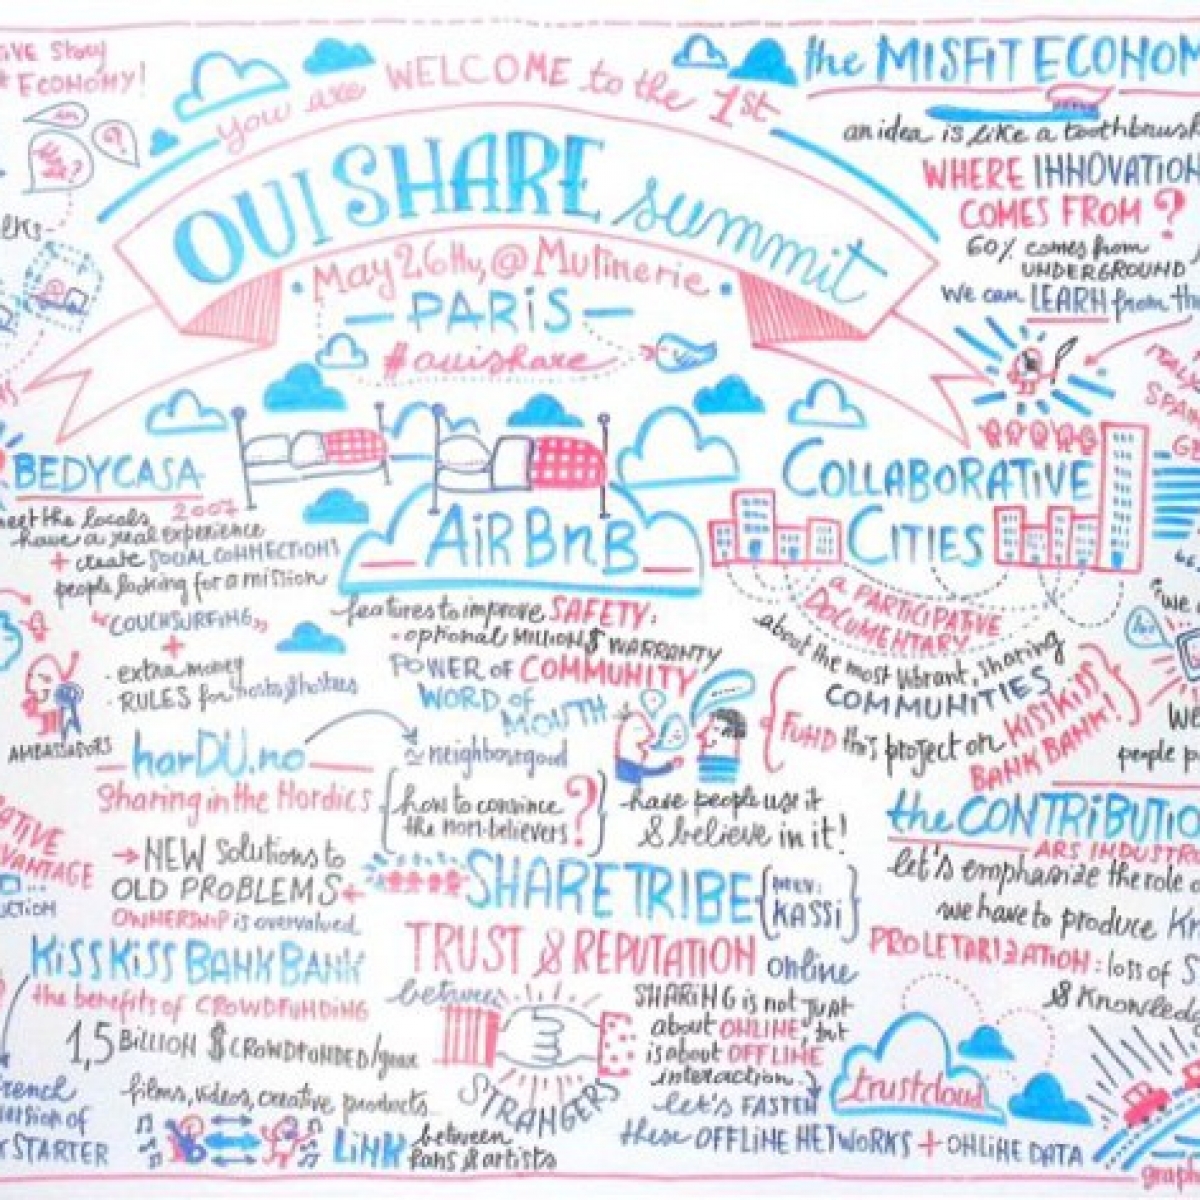 Story
ECONOMY!
in
?
you are WELCOME to the 1st
OUI SHARE summit
May 26th, @ Mutinerie
PARiS
#ouishare
the MISFIT ECONOM
an idea is like a toothbrush
WHERE INNOVATION
COMES FROM?
60% comes from
UNDERGROUND
We can LEARN from th
SPAN
BEDYCASA
2007
meet the locals
have a real experience
+ create SOCIAL CONNECTIONS
people looking for a mission
"COUCHSURFING"
+
· extra money
· RULES for hosts & hostees
AMBASSADORS
AiRBnB
features to improve SAFETY:
· optional MILLION $ WARRANTY
POWER OF COMMUNITY
WORD of
MOUTH
COLLABORATIVE
CITIES
a PARTICIPATIVE
DOCUMENTARY
about the most vibrant, sharing
COMMUNITIES
{FUND this project on KISSKISS
BANK BANK!}
"we
people p
harDU.no
≃ neighborgood
Sharing in the Nordics
{how to convince
the non-believers?}
have people use it
& believe in it!
→ NEW Solutions to
OLD PROBLEMS
OWNERSHIP is overvalued
ATIVE
VANTAGE
UCTION
SHARETRIBE
{prev:
KASSi}
TRUST & REPUTATION online
between
STRANGERS
SHARING is not just
about ONLINE, but
is about OFFLINE
interaction.
let's FASTEN
these OFFLINE NETWORKS + ONLINE DATA
KiSSKiSS BANKBANK
the benefits of CROWDFUNDING
1,5 BILLION $ CROWDFUNDED/year
films, videos, creative products
LiNK between
fans & artists
french
version of
KSTARTER
the CONTRiBUTiO
ARS INDUSTR
let's emphasize the role o
we have to produce Kn
PROLETARIZATION: loss of S
& Knowled
trustcloud
graph